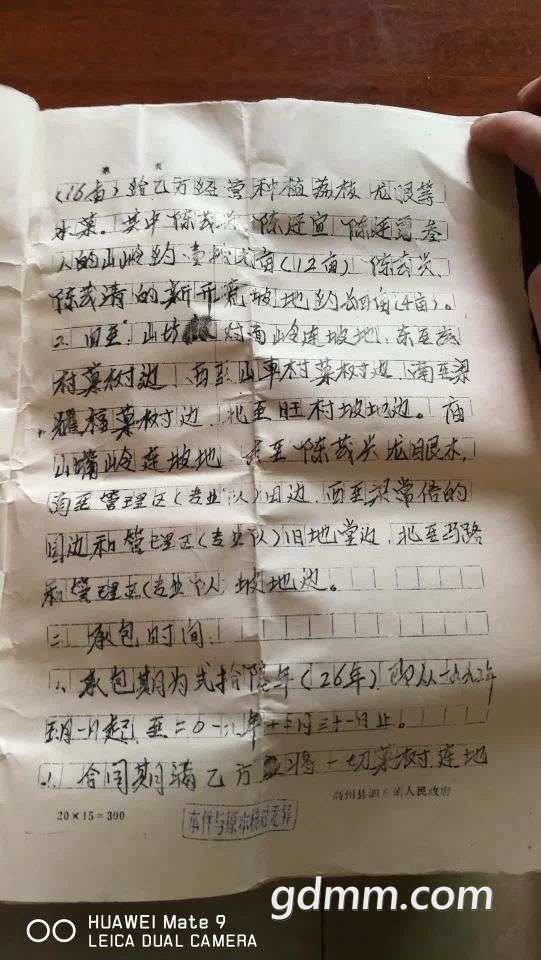 第 页
(16亩)给乙方经营种植荔枝、龙眼等
水菓。其中陈茂兴、陈廷宜、陈廷 叁
人的山岭约壹拾弍亩(12亩)、陈茂兴、
陈茂清的新开荒坡地约四亩(4亩)。
2、四至:山坊 对面岭连坡地,东至
村菓树边,西至山车村菓树边,南至梁
耀福菓树边,北至旺村坡地边。庙
山嘴岭连坡地,东至陈茂兴龙眼木,
南至管理区(专业队)田边,西至 常信的
园边和管理区(专业队)旧地堂边,北至马路
和管理区(专业队)坡地边。
二、承包时间:
1、承包期为弍拾陆年(26年),即从一九九 年
月一日起,至二0一八年十二月三十一日止。
2、合同期满乙方 将一切菓树连地
20×15=300
高州县 人民政府
本件与原本核对无异
gdmm.com
HUAWEI Mate 9
LEICA DUAL CAMERA